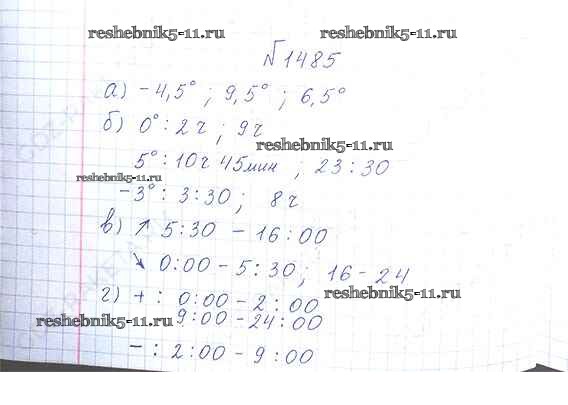 reshebnik5-11.ru reshebnik5-11.ru
№1485
а) -4,5° ; 9,5° ; 6,5°
б) 0° : 2 ч ; 9 ч
reshebnik5-11.ru
5° : 10 ч 45 мин ; 23 : 30
reshebnik5-11.ru
-3° : 3 : 30 ; 8 ч
в) ↗ 5 : 30 - 16 : 00
↘ 0:00 - 5 : 30 ; 16 - 24
г) + : 0:00 - 2 : 00
reshebnik5-11.ru
9:00 - 24:00
reshebnik5-11.ru
- : 2:00 - 9:00